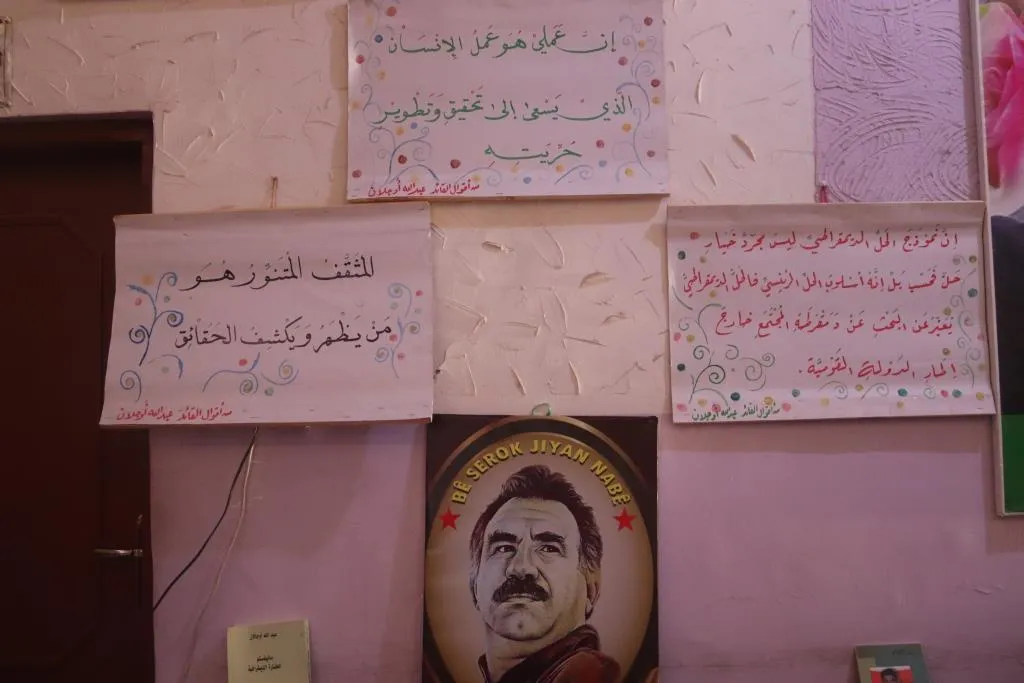 إنَّ عَمَليْ هُوَ عَمَلُ الإنْسَانْ
الَّذيْ يَسْعَىْ إلىْ تَحْقيقِ وَتَطْويرِ
حُرِّيَتِهِ
من أقوال القائد عبدالله أوجلان
المُثَقَّفُ المُتَنوِّرُ هُوَ
مَنْ يَظْهَرُ وَيَكْشِفُ الحَقَائِقْ
من أقوال القائد عبدالله أوجلان
إنَّ نَمُوذَجَ الحَلِّ الديمقراطيِّ ليسَ مجرَّدَ خَيارِ
حَلٍّ فَحَسْب بَلْ إنَّهُ أسْلوبُ الحلِّ الرئيسيِّ فالحلُّ الديمقراطيُّ
يُعَبِّرُ عَنْ البَحْثِ عَنْ دَمَقْرَطَةِ المُجْتَمَعِ خارِجَ
إطارِ الدَوْلةِ القَوْميَّة.
من أقوال القائد عبدالله أوجلان
BÊ SEROK JIYAN NABÊ
عبد الله اوجلان
مانيفستو
الحضارة الديمقراطية